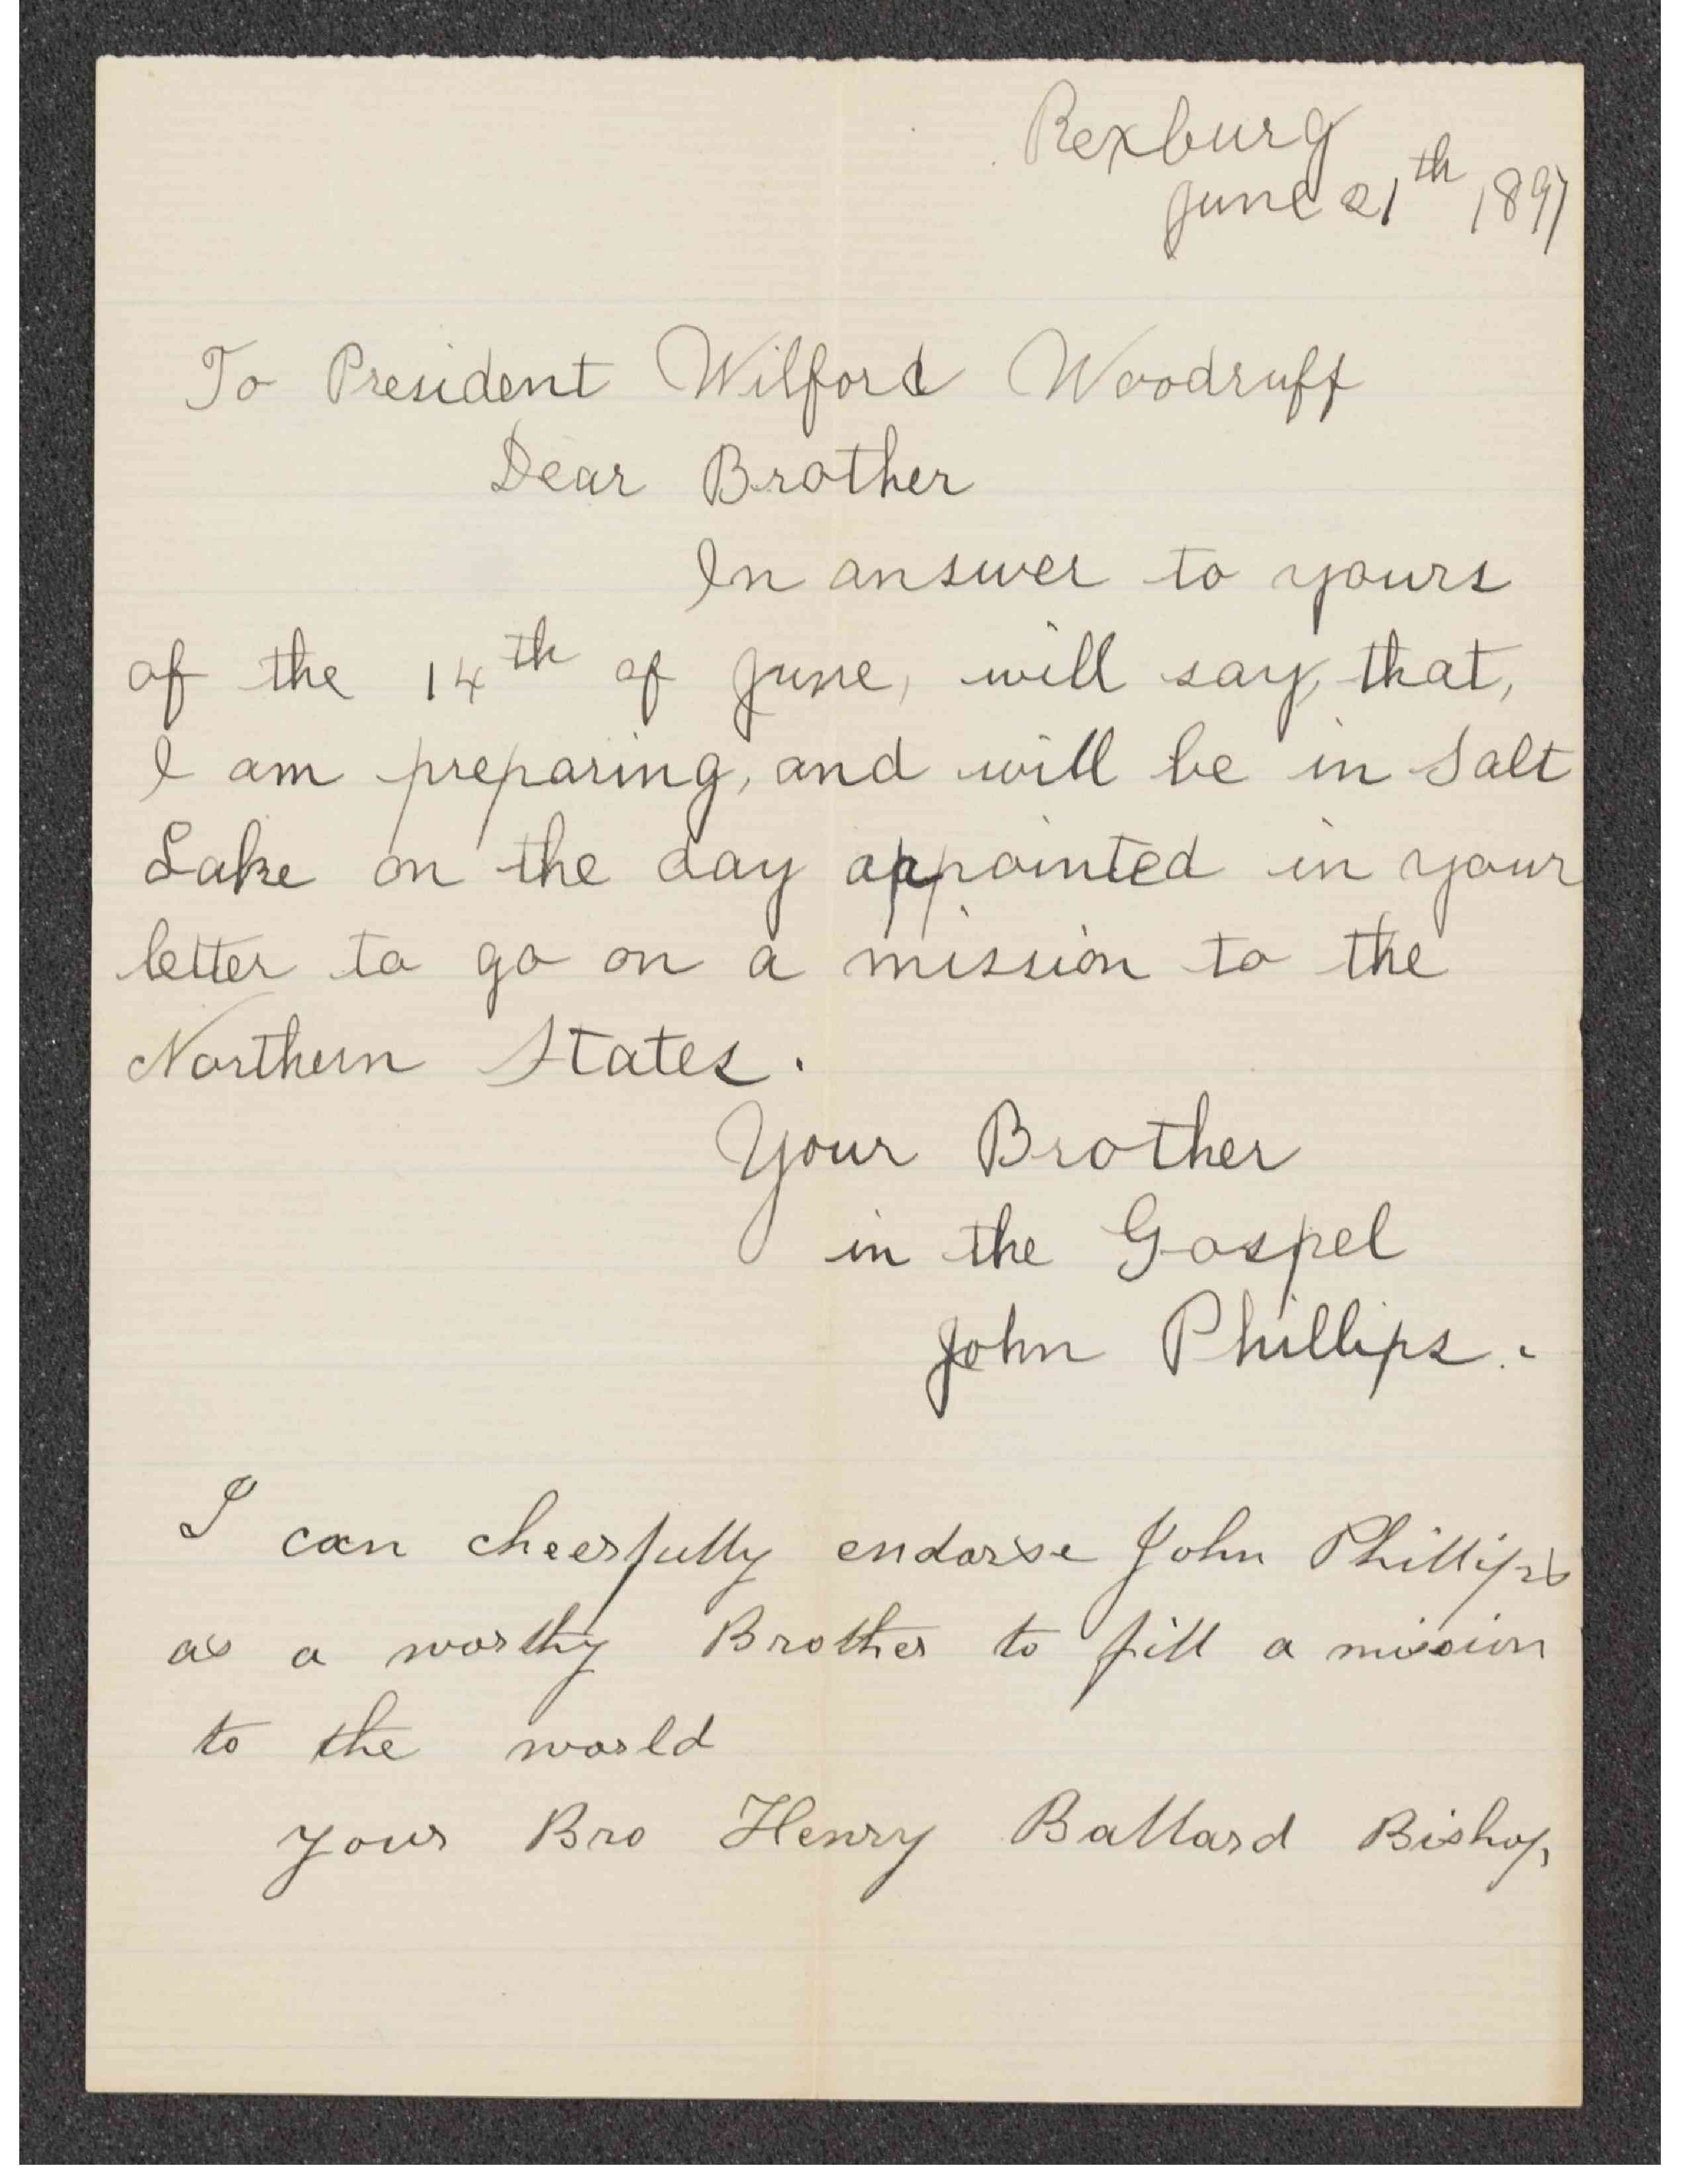 Rexburg
June 21th 1897
To President Wilford Woodruff
Dear Brother
In answer to yours
of the 14th of June, will say, that,
I am preparing, and will be in Salt
Lake on the day appointed in your
letter to go on a mission to the
Northern States.
Your Brother
in the Gospel
John Phillips.
I can cheerfully endorse John Phillips
as a worthy Brother to fill a mission
to the world
your Bro Henry Ballard Bishop,